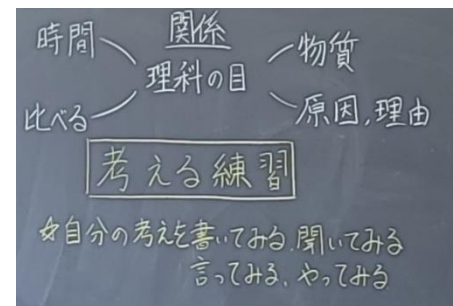 関係
時間 理科の目 物質
比べる 原因,理由
考える練習
☆自分の考えを書いてみる、聞いてみる
言ってみる、やってみる